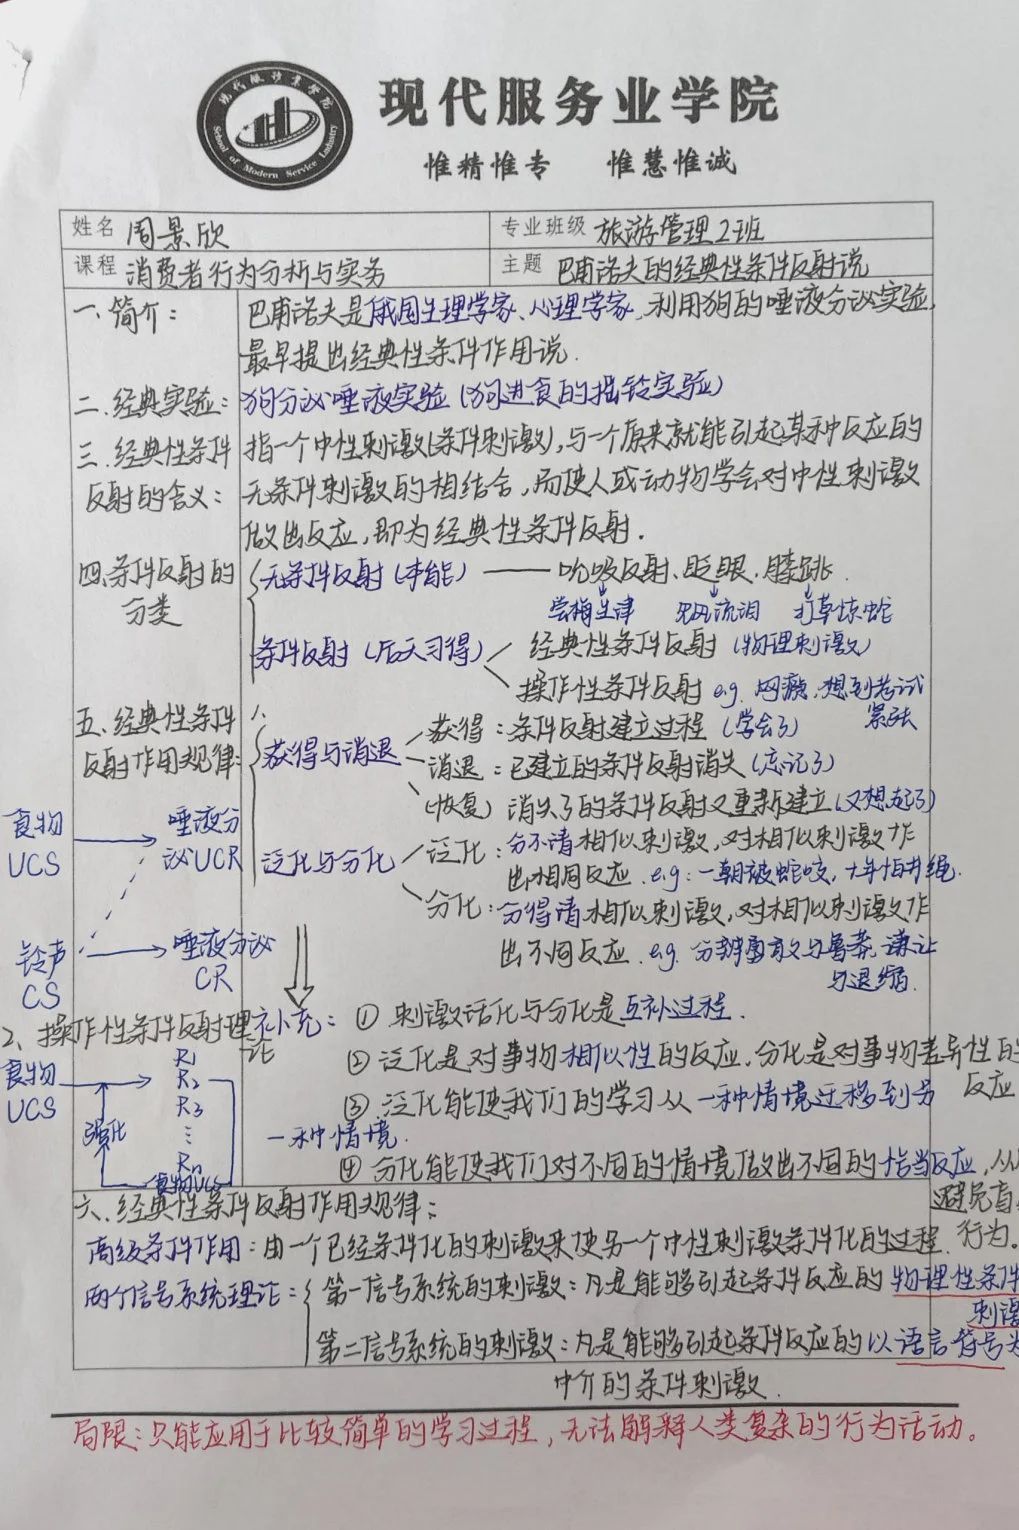 现代服务业学院
School of Modern Service Industry
现代服务业学院
惟精惟专 惟慧惟诚
姓名 周景欣 专业班级 旅游管理2班
课程 消费者行为分析与实务 主题 巴甫洛夫的经典性条件反射说
一、简介： 巴甫洛夫是俄国生理学家、心理学家，利用狗的唾液分泌实验，
最早提出经典性条件作用说．
二．经典实验： 狗分泌唾液实验（狗进食的摇铃实验）
三．经典性条件 指一个中性刺激（条件刺激），与一个原来就能引起某种反应的
反射的含义： 无条件刺激的相结合，而使人或动物学会对中性刺激
做出反应，即为经典性条件反射．
四、条件反射的 无条件反射（本能）—— 吮吸反射、眨眼、膝跳．
分类 尝梅生津 见风流泪 打草惊蛇
条件反射（后天习得） 经典性条件反射（物理刺激）
操作性条件反射 e.g. 网瘾，想到考试
紧张
五、经典性条件 获得：条件反射建立过程（学会了）
反射作用规律： 获得与消退 消退：已建立的条件反射消失（忘记了）
（恢复）消失了的条件反射又重新建立（又想起了）
食物 唾液分
UCS 泌UCR
泛化与分化 泛化：分不清相似刺激，对相似刺激作
出相同反应．e.g：一朝被蛇咬，十年怕井绳．
分化：分得清相似刺激，对相似刺激作
出不同反应．e.g. 分辨勇敢与鲁莽、谦让
与退缩．
铃声 唾液分泌
CS CR
补充：① 刺激泛化与分化是互补过程．
2、操作性条件反射理论
② 泛化是对事物相似性的反应，分化是对事物差异性的
反应
食物 R1
UCS R2
R3
⋮
Rn
强化
食物UCS
③ 泛化能使我们的学习从一种情境迁移到另
一种情境．
④ 分化能使我们对不同的情境做出不同的恰当反应，从
避免盲
行为。
六、经典性条件反射作用规律：
高级条件作用：由一个已经条件化的刺激来使另一个中性刺激条件化的过程．
两个信号系统理论： 第一信号系统的刺激：凡是能够引起条件反应的物理性条件
刺激
第二信号系统的刺激：凡是能够引起条件反应的以语言符号为
中介的条件刺激．
局限：只能应用于比较简单的学习过程，无法解释人类复杂的行为活动。